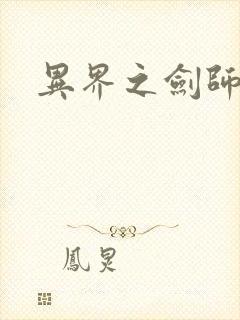 異界之劍師
鳳炅